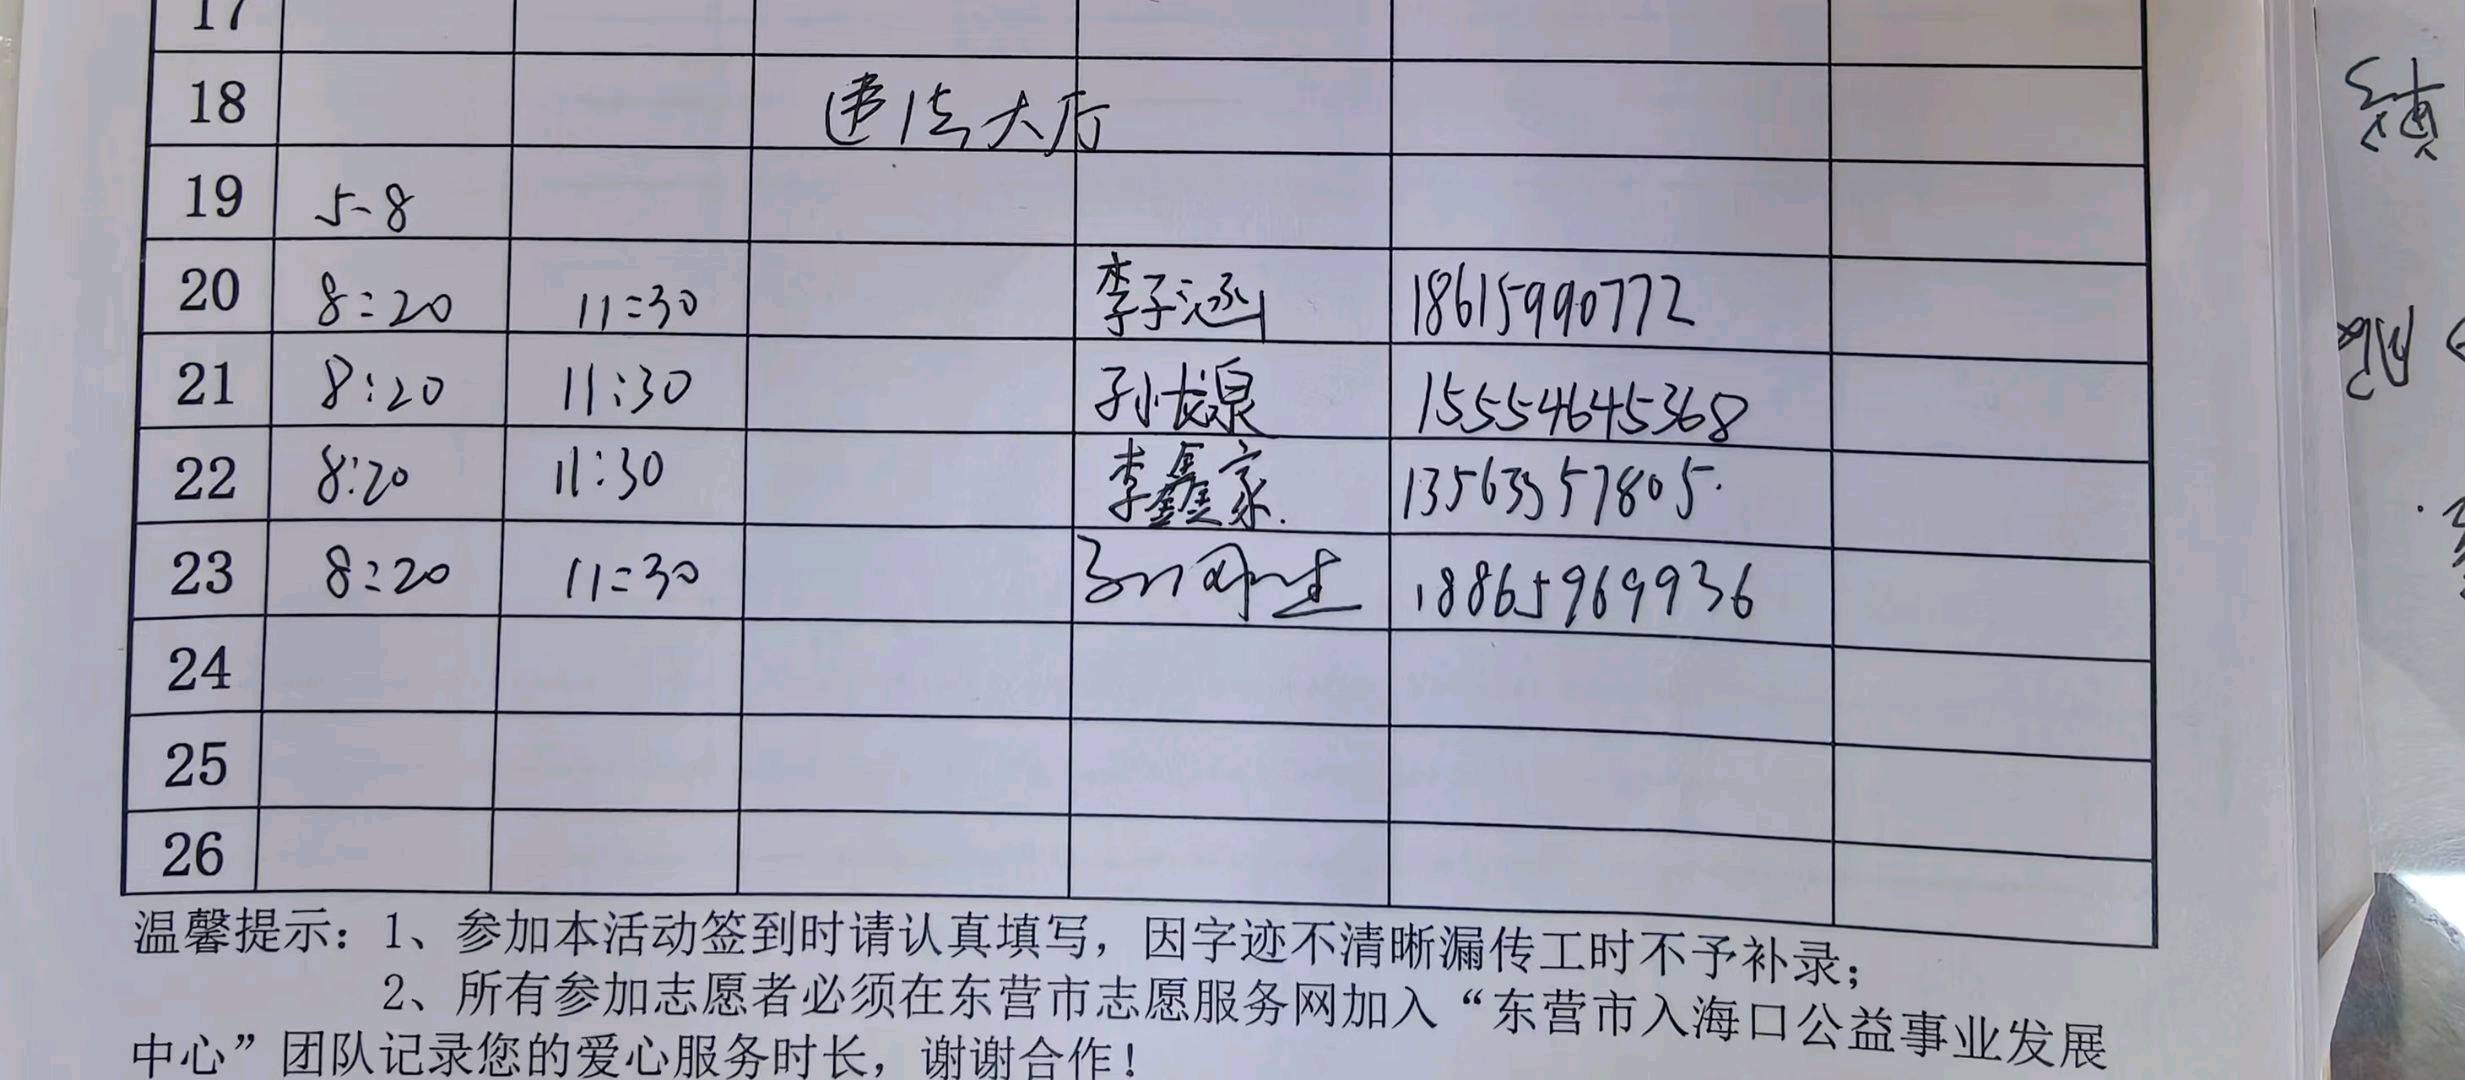 17
18 违法大厅
19 5-8
20 8:20 11:30 李子涵 18615990772
21 8:20 11:30 孙龙泉 15554645368
22 8:20 11:30 李鑫家 13563357805
23 8:20 11:30 18865969936
24
25
26
温馨提示：1、参加本活动签到时请认真填写，因字迹不清晰漏传工时不予补录；
2、所有参加志愿者必须在东营市志愿服务网加入“东营市入海口公益事业发展
中心”团队记录您的爱心服务时长，谢谢合作！